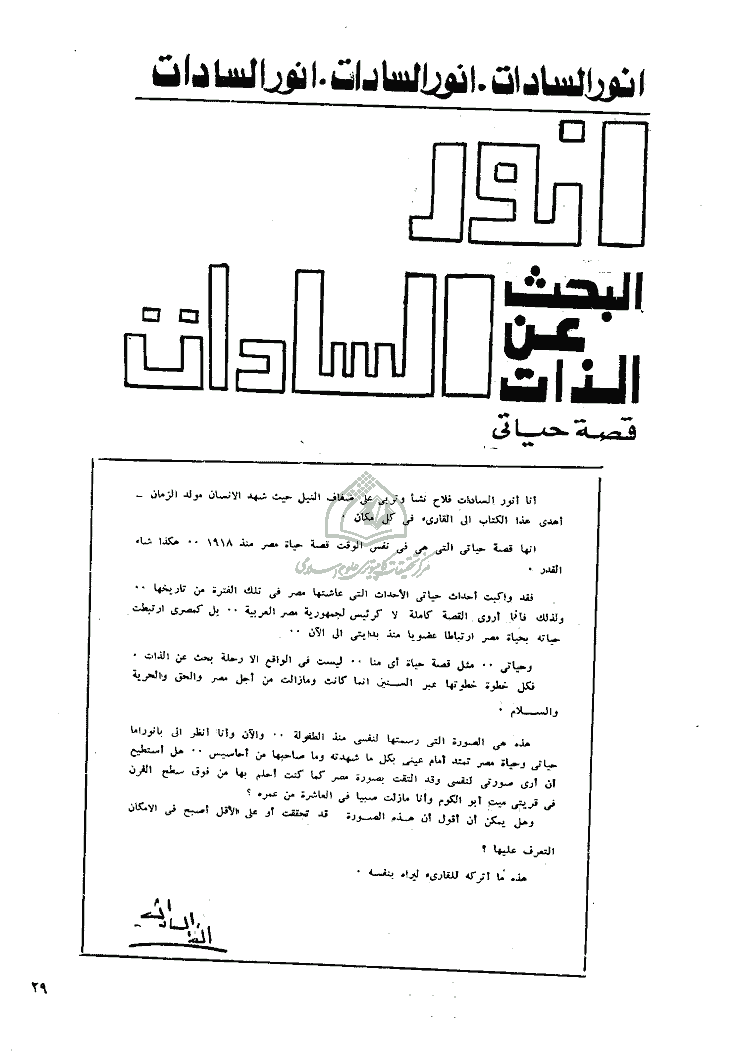 انور السادات . انور السادات . انور السادات
انور
السادات
البحث
عن
الذات
قصة حياتى
أنا أنور السادات فلاح نشأ وتربى على ضفاف النيل حيث شهد الانسان مولد الزمان –
أهدى هذا الكتاب الى القارىء فى كل مكان ٠
انها قصة حياتى التى هى فى نفس الوقت قصة حياة مصر منذ ١٩١٨ ٠٠ هكذا شاء
القدر ٠
فقد واكبت أحداث حياتى الأحداث التى عاشتها مصر فى تلك الفترة من تاريخها ٠٠
ولذلك فأنما أروى القصة كاملة لا كرئيس لجمهورية مصر العربية ٠٠ بل كمصرى ارتبطت
حياته بحياة مصر ارتباطا عضويا منذ بدايتى الى الآن ٠٠
وحياتى ٠٠ مثل قصة حياة أى منا ٠٠ ليست فى الواقع الا رحلة بحث عن الذات ٠
فكل خطوة خطوتها عبر السنين انما كانت ومازالت من أجل مصر والحق والحرية
والسلام ٠
هذه هى الصورة التى رسمتها لنفسى منذ الطفولة ٠٠ والآن وأنا أنظر الى بانوراما
حياتى وحياة مصر تمتد أمام عينى بكل ما شهدته وما صاحبها من أحاسيس ٠٠ هل أستطيع
أن أرى صورتى لنفسى وقد التقت بصورة مصر كما كنت أحلم بها من فوق سطح الفرن
فى قريتى ميت أبو الكوم وأنا مازلت صبيا فى العاشرة من عمره ؟
وهل يمكن أن أقول أن هذه الصورة قد تحققت أو على الأقل أصبح فى الامكان
التعرف عليها ؟
هذه ما أتركه للقارىء ليراه بنفسه ٠
مركز تحقيقات كامپيوترى علوم اسلامى
٢٩